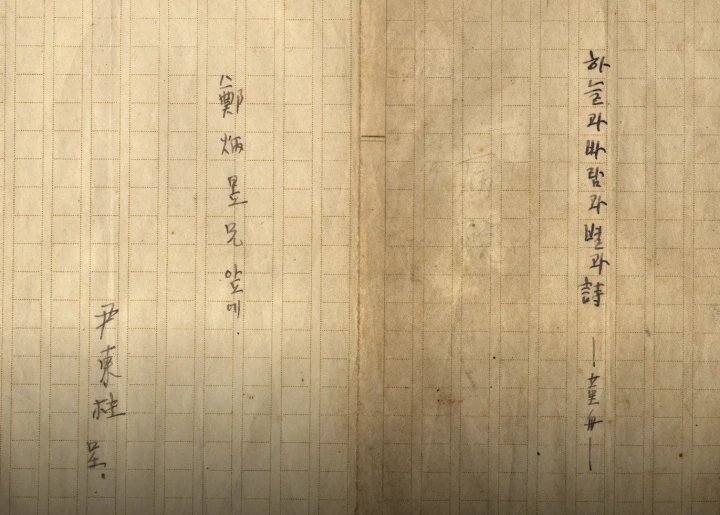 하늘과바람과별과詩
—童舟—
病院
鄭炳昱兄 앞에.
尹東柱 呈.